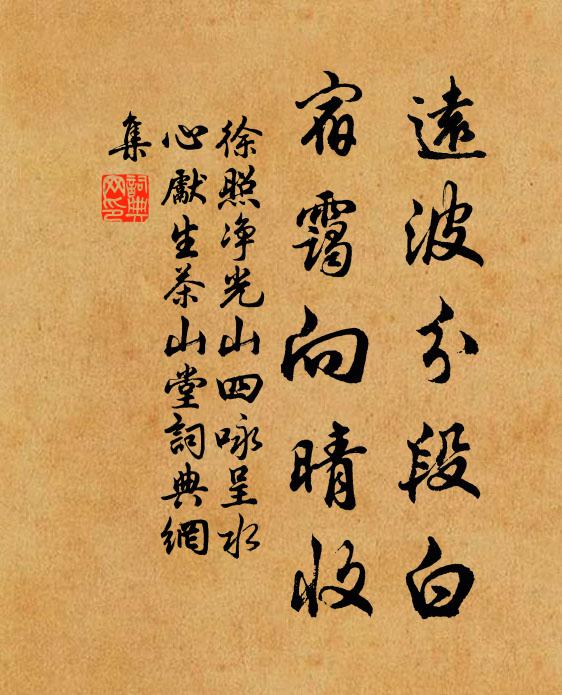 遠波分段白
宿靄向晴收
徐照净光山四咏呈水
心獻生茶山堂詞典網
集
詞典网印